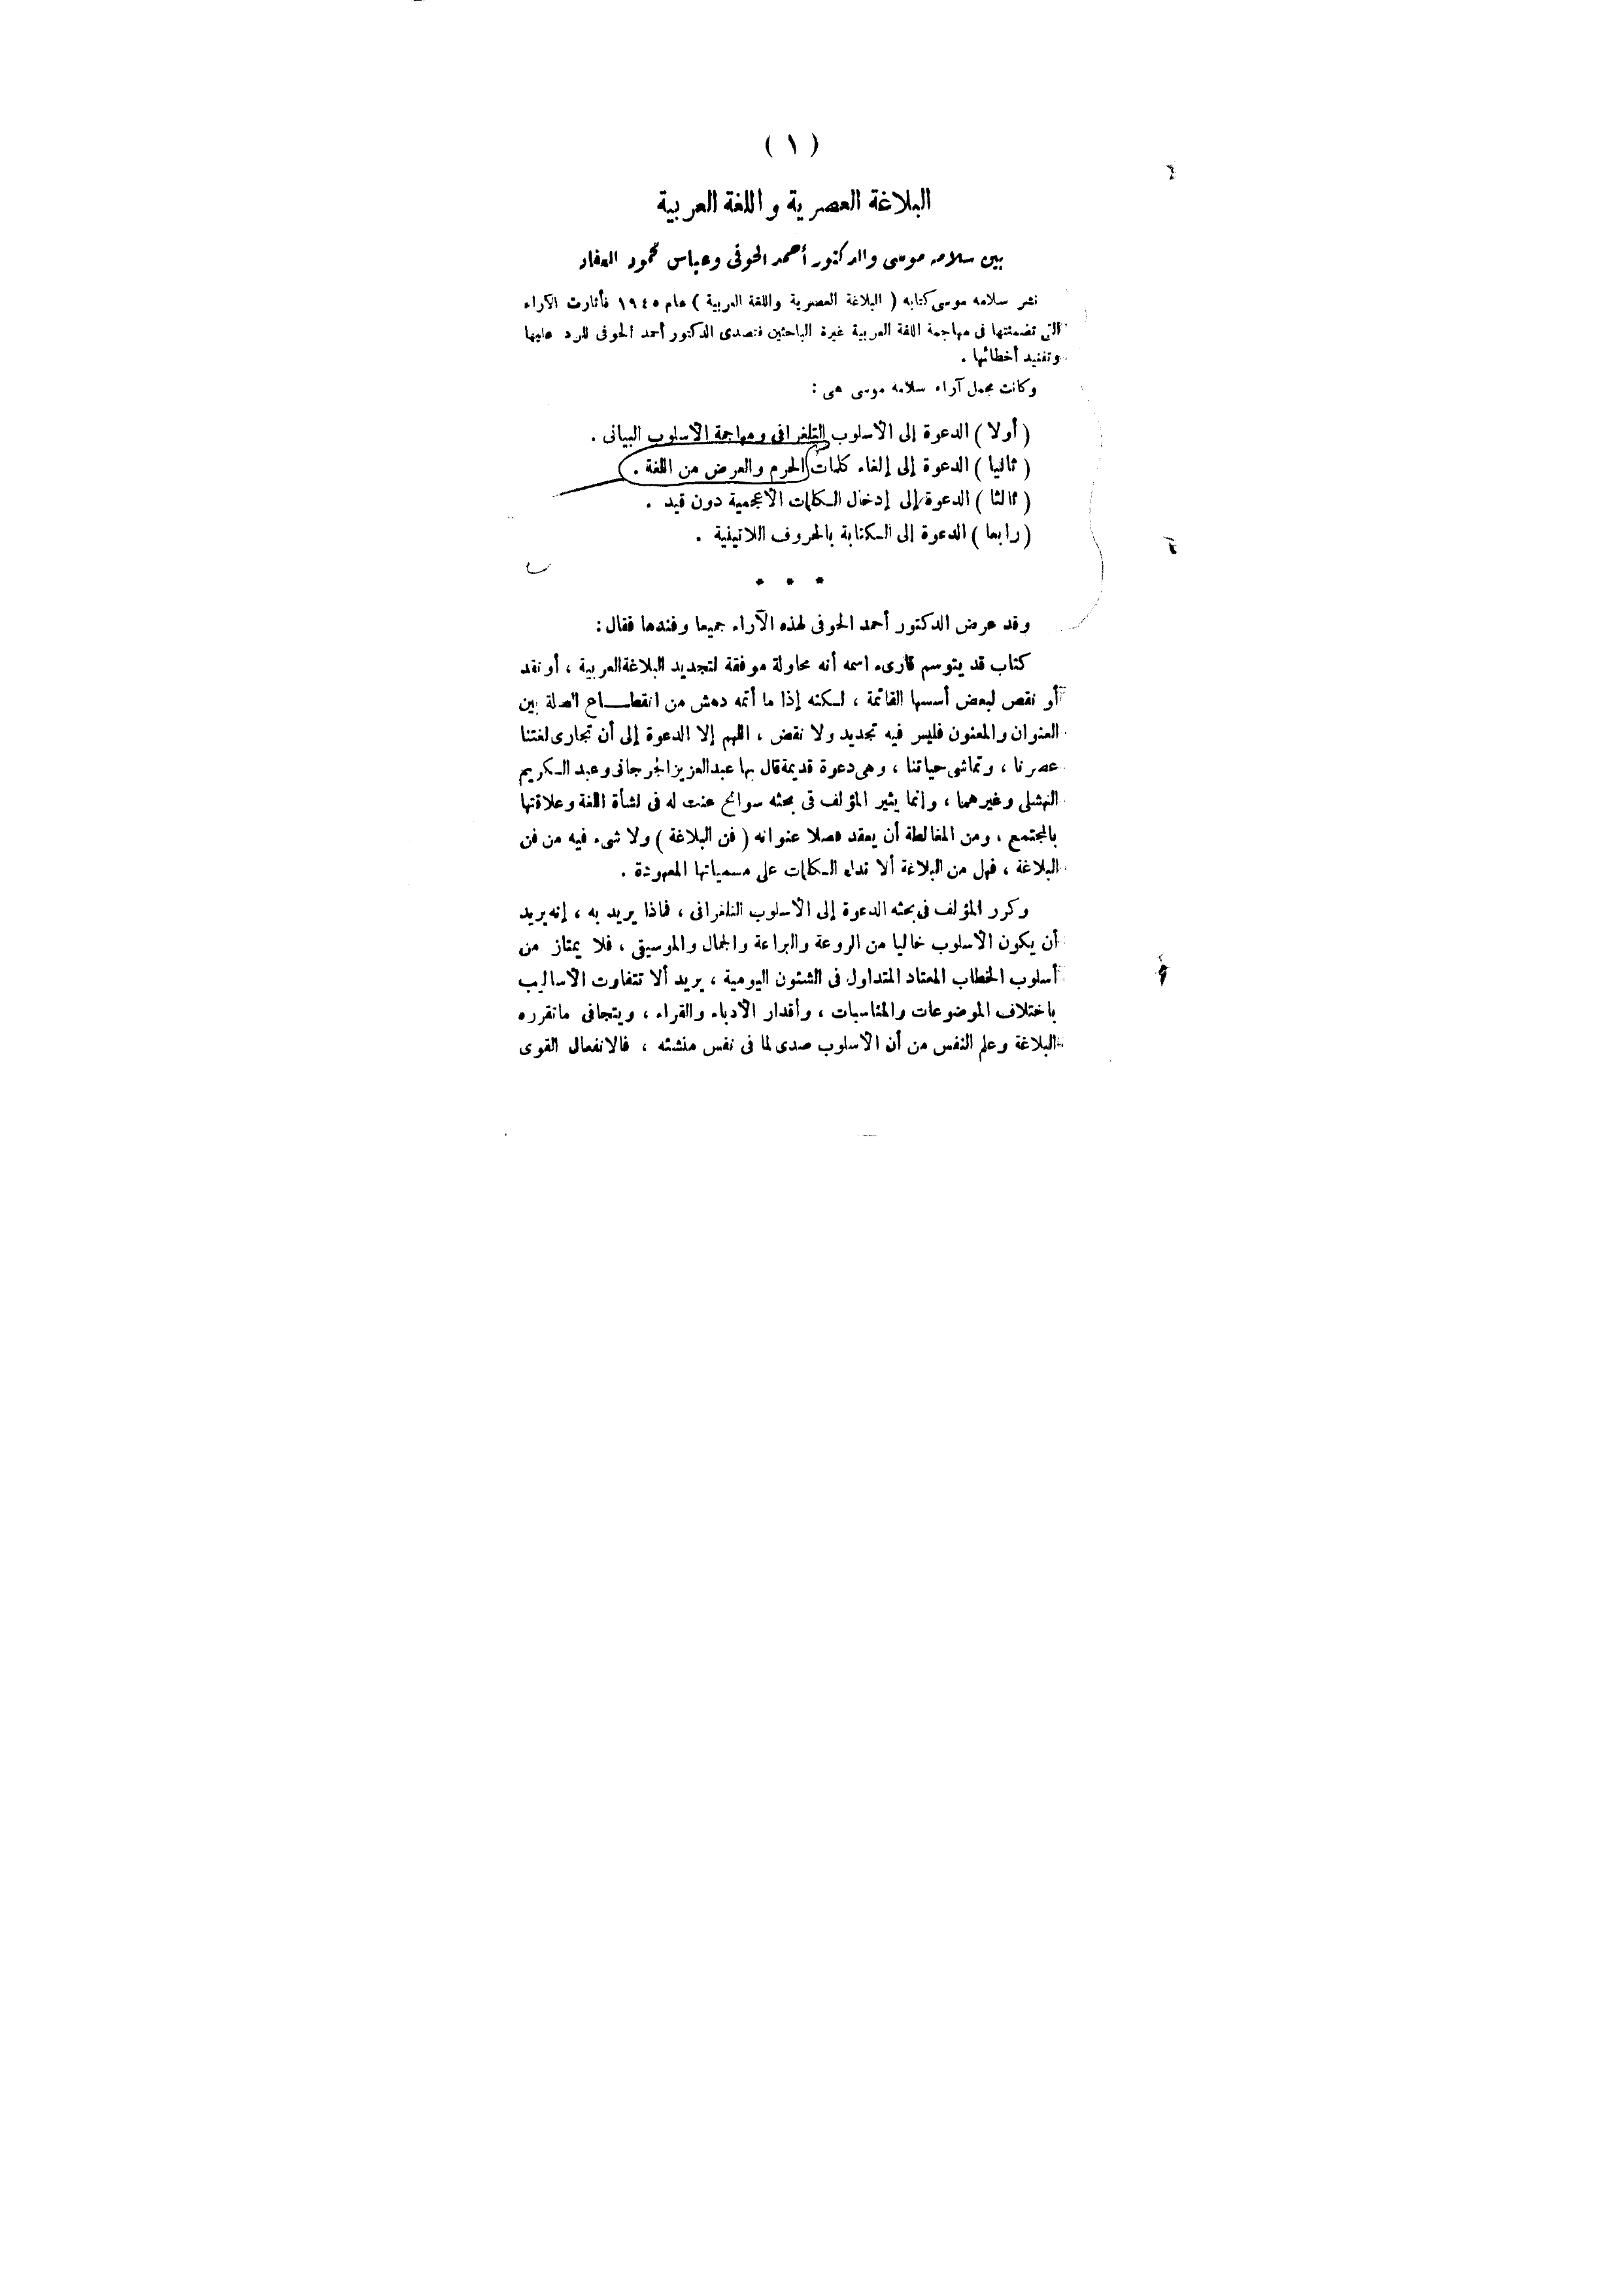 ( ١ )
البلاغة العصرية واللغة العربية
بين سلامه موسى والدكتور أحمد الحوفى وعباس محمود العقاد
نشر سلامه موسى كتابه ( البلاغة العصرية واللغة العربية ) عام ١٩٤٥ فأثارت الآراء
التى تضمنتها فى مهاجمة اللغة العربية غيرة الباحثين فتصدى الدكتور أحمد الحوفى للرد عليها
وتفنيد أخطائها .
وكانت مجمل آراء سلامه موسى هى :
( أولا ) الدعوة إلى الأسلوب التلغرافى ومهاجمة الأسلوب البيانى .
( ثانيا ) الدعوة إلى إلغاء كلمات الحرم والعرض من اللغة .
( ثالثا ) الدعوة إلى إدخال الكلمات الأعجمية دون قيد .
( رابعا ) الدعوة إلى الكتابة بالحروف اللاتينية .
* * *
وقد عرض الدكتور أحمد الحوفى لهذه الآراء جميعا وفندها فقال :
كتاب قد يتوسم قارىء اسمه أنه محاولة موفقة لتجديد البلاغة العربية ، أو نقد
أو نقص لبعض أسسها القائمة ، لكنه إذا ما أتمه دهش من انقطاع الصلة بين
العنوان والمعنون فليس فيه تجديد ولا نقض ، اللهم إلا الدعوة إلى أن تجارى لغتنا
عصرنا ، وتماشى حياتنا ، وهى دعوة قديمة قال بها عبد العزيز الجرجانى وعبد الكريم
النهشلى وغيرهما ، وإنما يثير المؤلف فى بحثه سوانح عنت له فى نشأة اللغة وعلاقتها
بالمجتمع ، ومن المغالطة أن يعقد فصلا عنوانه ( فن البلاغة ) ولا شىء فيه من فن
البلاغة ، فهل من البلاغة ألا تدل الكلمات على مسمياتها المعهودة .
وكرر المؤلف فى بحثه الدعوة إلى الأسلوب التلغرافى ، فماذا يريد به ، إنه يريد
أن يكون الأسلوب خاليا من الروعة والبراعة والجمال والموسيقى ، فلا يمتاز من
أسلوب الخطاب المعتاد المتداول فى الشئون اليومية ، يريد ألا تتفاوت الأساليب
باختلاف الموضوعات والمناسبات ، وأقدار الأدباء والقراء ، ويتجافى ماتقرره
البلاغة وعلم النفس من أن الأسلوب صدى لما فى نفس منشئه ، فالانفعال القوى